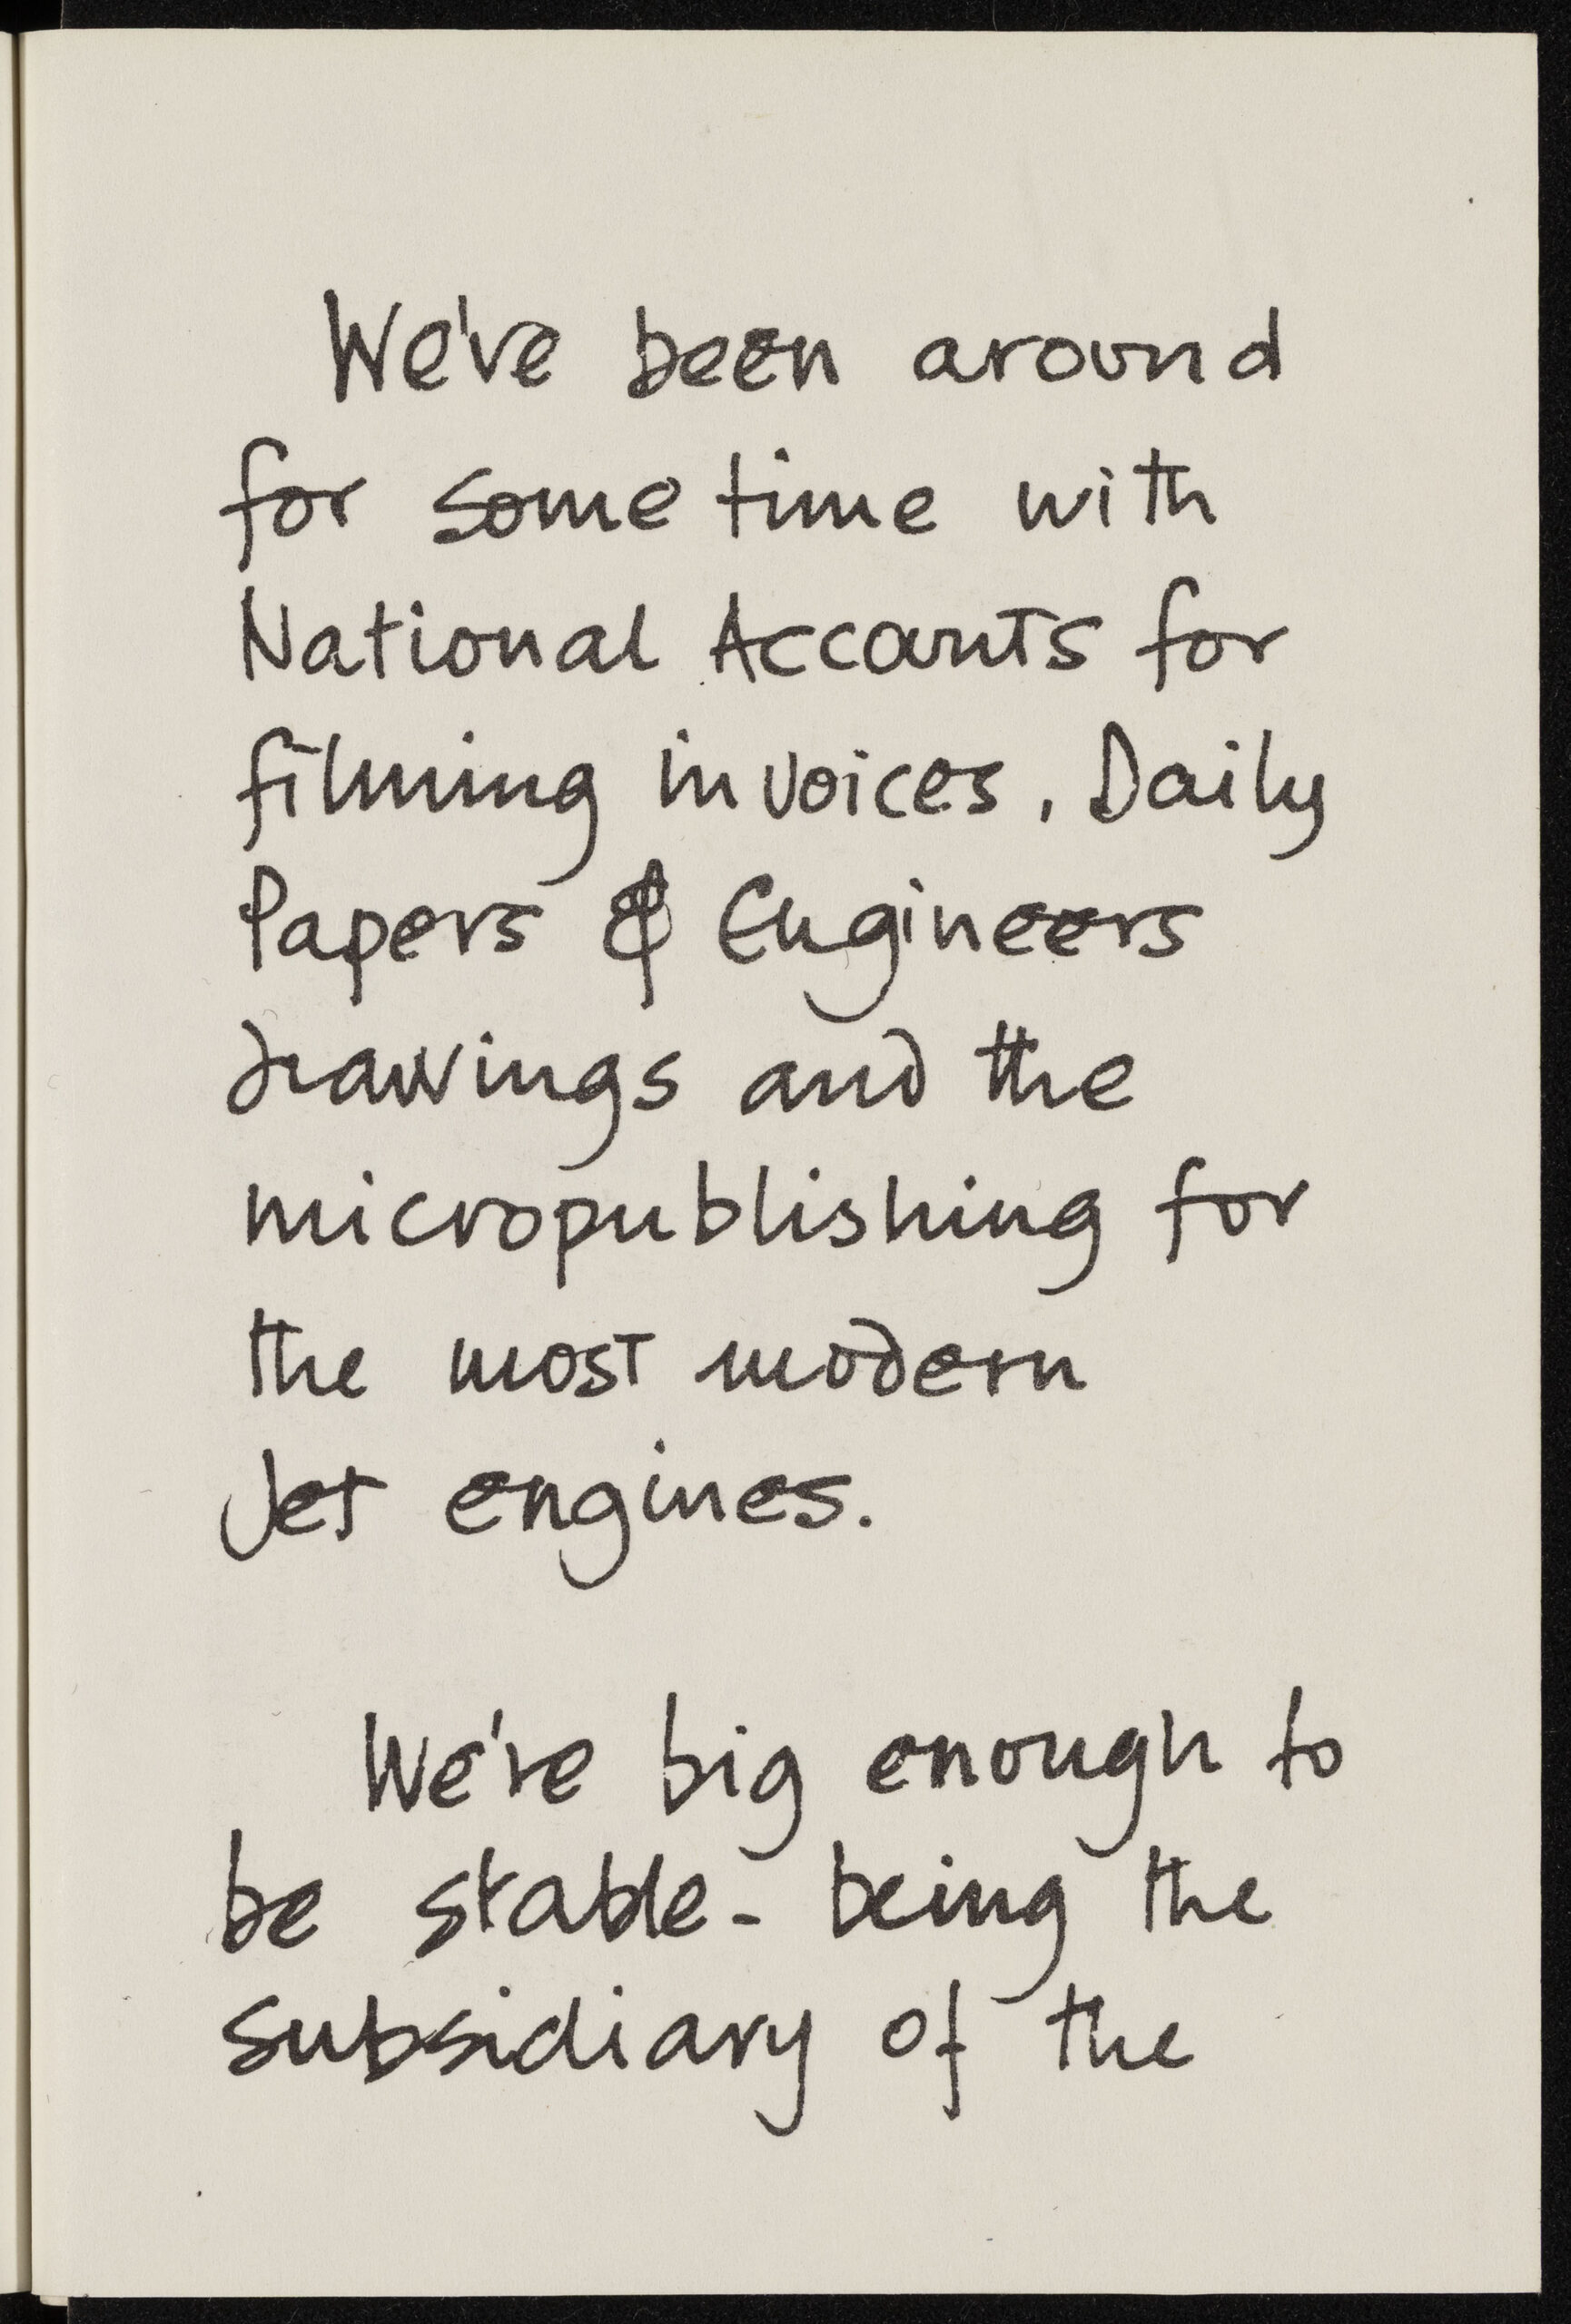 We've been around
for some time with
National Accounts for
filming invoices, Daily
Papers & Engineers
drawings and the
micropublishing for
the most modern
Jet engines.
We're big enough to
be stable - being the
subsidiary of the